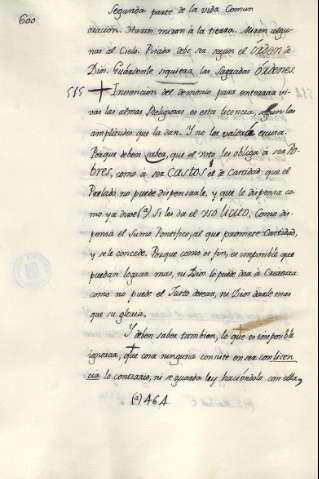 600
Segunda parte de la vida Comun
oración. Hurtar miran à la tierra. Miren alguna
nas al Cielo. Privado debe ser segun el orden de
Dios. Guardenle siquiera, las sagradas Órdenes.
515 + Invencion del demonio para entrar a vi
nar las almas Religiosas es esta licencia, con las
amplitudes que la dan. Y no les valdrá escusa.
Porque deben saber, que el voto les obliga à ser Po
bres, como à ser castos el de Castidad, que el
Prelado no puede dispensarle, y que le dispensa co
mo ya dixe (a) si les da el uso licito, como dis
pensa el sumo Pontifice, al que promete Castidad,
y se le concede. Porque como es fin, es imposible que
puedan lograr mas, ni Dios lo puede dar à Criatura
como no puede el Justo desear, ni Dios darle mas
que su gloria.
Y deben saber tambien, lo que es imposible
ignorar, que con ninguna consiste en ser con licen
cia lo contrario, ni se guarda ley haciendolo con ella,
(a) 464